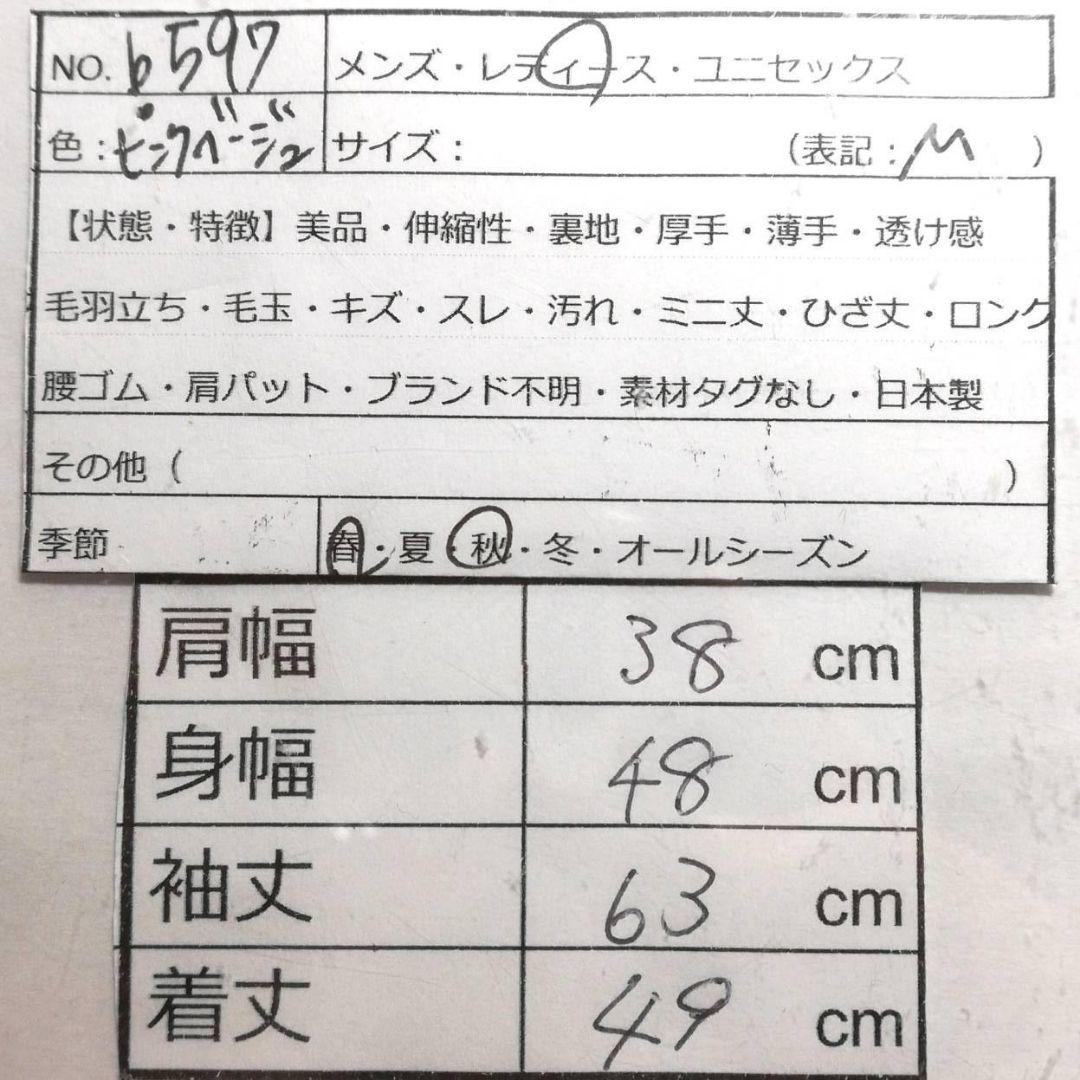 NO. b597 メンズ・レディース・ユニセックス
色：ピンクベージュ サイズ： （表記：M ）
【状態・特徴】美品・伸縮性・裏地・厚手・薄手・透け感
毛羽立ち・毛玉・キズ・スレ・汚れ・ミニ丈・ひざ丈・ロング
腰ゴム・肩パット・ブランド不明・素材タグなし・日本製
その他（ ）
季節 春・夏・秋・冬・オールシーズン
肩幅 38 cm
身幅 48 cm
袖丈 63 cm
着丈 49 cm